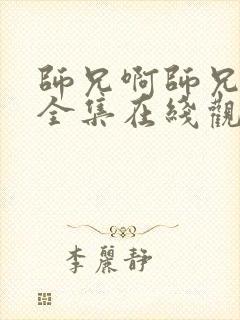 師兄啊師兄
全集在綫觀
李麗靜